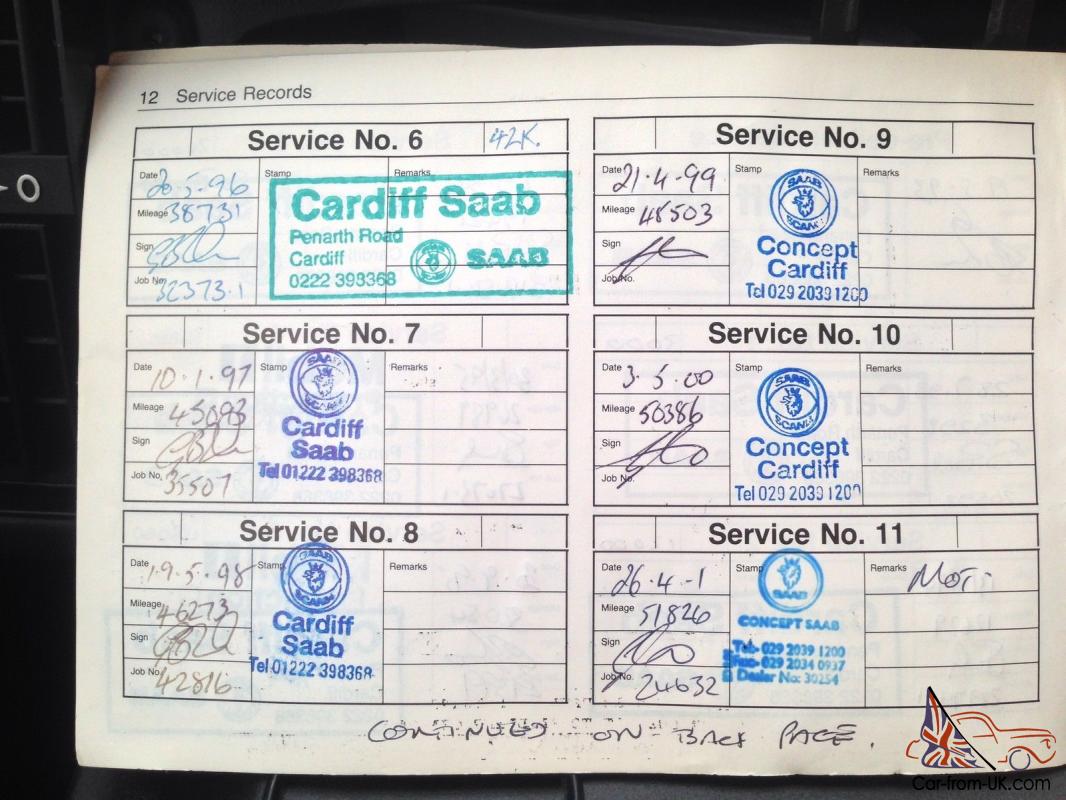 12 Service Records
Service No. 6 42K.
Date 20.5.96
Mileage 38731
Sign
Job No. 32373.1
Stamp
Cardiff Saab
Penarth Road
Cardiff
0222 398368
SAAB
Remarks
Service No. 7
Date 10.1.97
Mileage 45093
Sign
Job No. 35507
Stamp
SAAB
SCANIA
Cardiff
Saab
Tel 01222 398368
Remarks
Service No. 8
Date 19.5.98
Mileage 46273
Sign
Job No. 42816
Stamp
SAAB
SCANIA
Cardiff
Saab
Tel 01222 398368
Remarks
Service No. 9
Date 21.4.99
Mileage 48503
Sign
Job No.
Stamp
SAAB
SCANIA
Concept
Cardiff
Tel 029 2039 1200
Remarks
Service No. 10
Date 3.5.00
Mileage 50386
Sign
Job No.
Stamp
SAAB
SCANIA
Concept
Cardiff
Tel 029 2039 1200
Remarks
Service No. 11
Date 26.4.1
Mileage 51826
Sign
Job No. 24632
Stamp
SAAB
CONCEPT SAAB
Tel:- 029 2039 1200
Fax:- 029 2034 0937
Dealer No: 30254
Remarks MOT.
CONTINUED ON BACK PAGE.
Car-from-UK.com